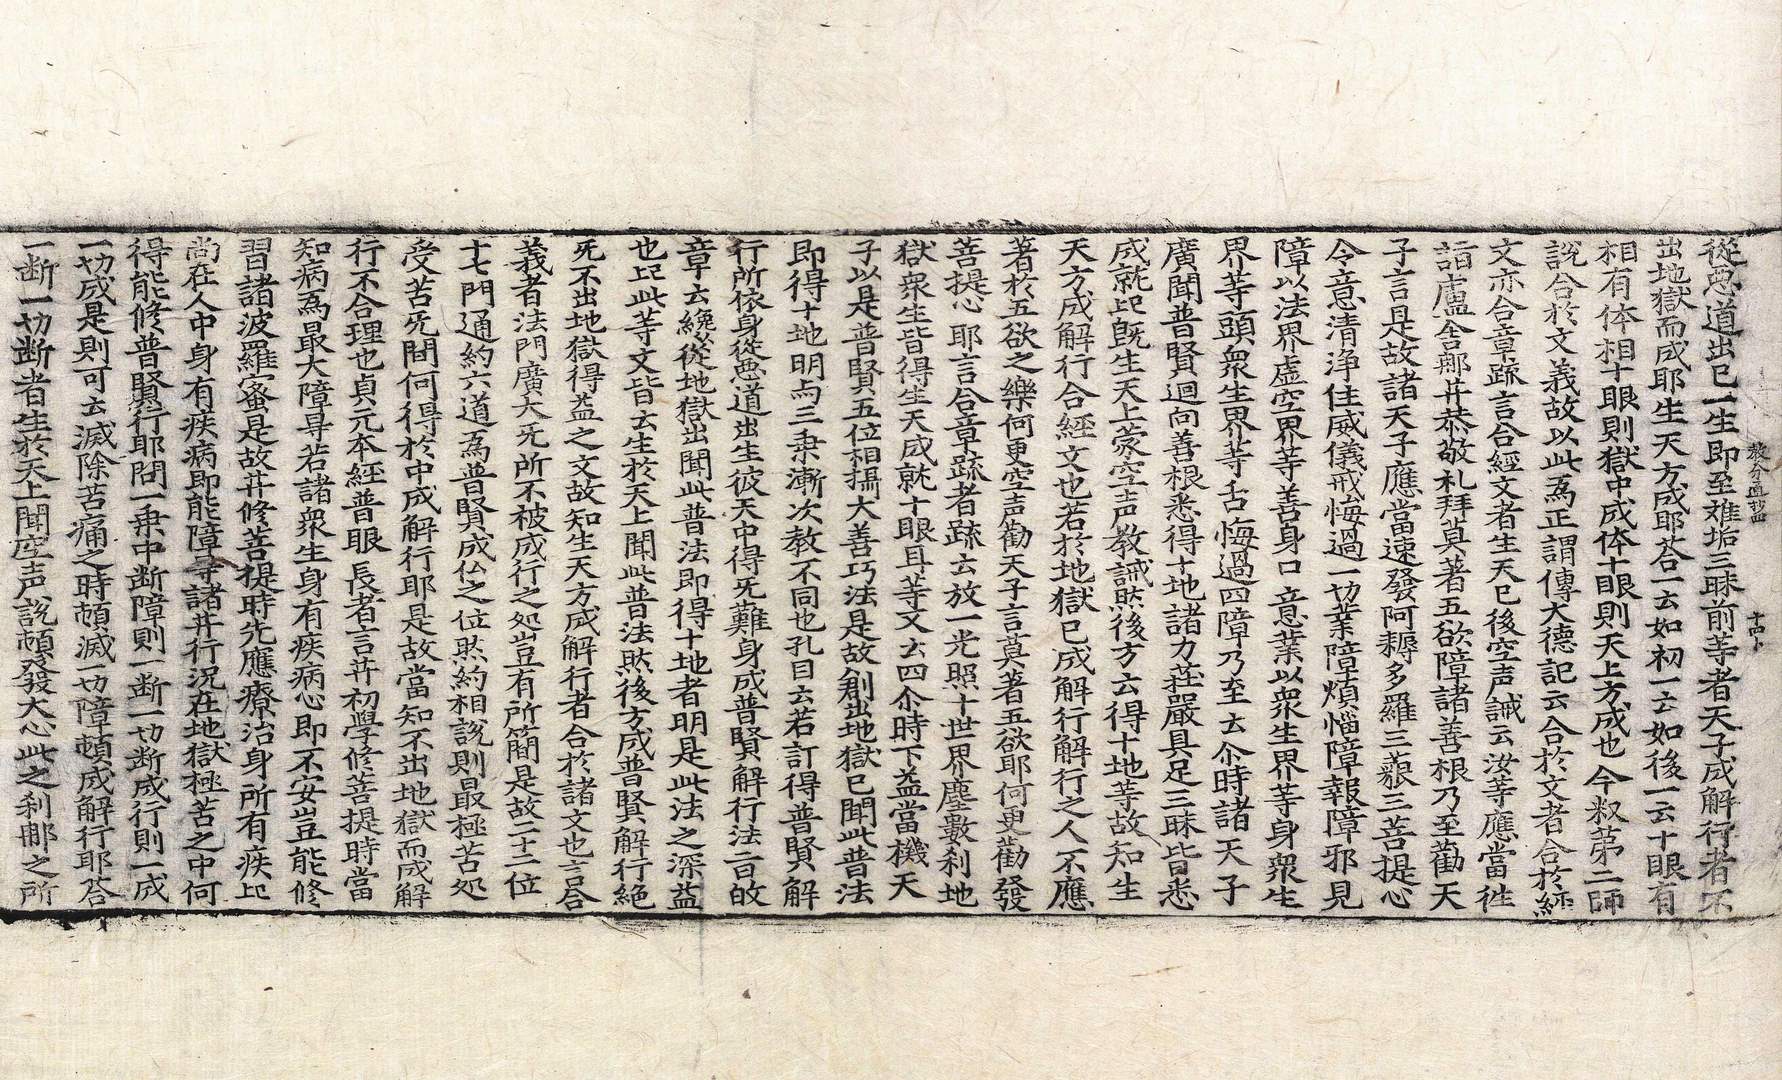 從悪道出已一生即至难垢三昧前等者天子成解行者不
出地獄而成耶生天方成耶荅一云如初一云如後一云十眼有
相有体相十眼則獄中成体十眼則天上方成也今叙苐二師
說合於文義故以此爲正謂傳大德記云合於文者合於經
文亦合章䟽言合經文者生天已後空声誡云汝等應當徃
詣盧舍那丼恭敬礼拜莫著五欲障諸善根乃至勸天
子言是故諸天子應當速發阿耨多羅三藐三菩提心
令意清淨住威儀戒悔過一切業障煩惱障報障邪見
障以法界虛空界等善身口意業以衆生界等身衆生
界等頭衆生界等舌悔過四障乃至云尒時諸天子
廣聞普賢迴向善根悉得十地諸力莊嚴具足三昧皆悉
成就㠯旣生天上蒙空声教誡然後方云得十地等故知生
天方成解行合經文也若於地獄已成解行解行之人不應
著於五欲之樂何更空声勸天子言莫著五欲耶何更勸發
菩提心耶言合章䟽者䟽云放一光照十世界塵數刹地
獄衆生皆得生天成就十眼耳等又云四尒時下益當機天
子以是普賢五位相攝大善巧法是故創出地獄已聞此普法
即得十地明与三乗漸次教不同也孔目云若訂得普賢解
行所依身從悪道出生彼天中得旡難身成普賢解行法二百的
章云纔從地獄出聞此普法即得十地者明是此法之深益
也㠯此等文皆云生於天上聞此普法然後方成普賢解行絕
旡不出地獄得益之文故知生天方成解行者合於諸文也言合
義者法門廣大旡所不被成行之処豈有所簡是故二十二位
十七門通約六道爲普賢成仏之位然約相說則最極苦処
受苦旡閒何得於中成解行耶是故當知不出地獄而成解
行不合理也貞元本經普眼長者言丼初學修菩提時當
知病爲最大障㝵若諸衆生身有疾病心即不安豈能修
習諸波羅蜜是故丼修菩提時先應療治身所有疾㠯
尚在人中身有疾病即能障㝵諸丼行况在地獄極苦之中何
得能修普賢行耶問一乗中断障則一断一切断成行則一成
一切成是則可云滅除苦痛之時頓滅一切障頓成解行耶荅
一断一切断者生於天上聞空声說頓發大心此之刹那之所